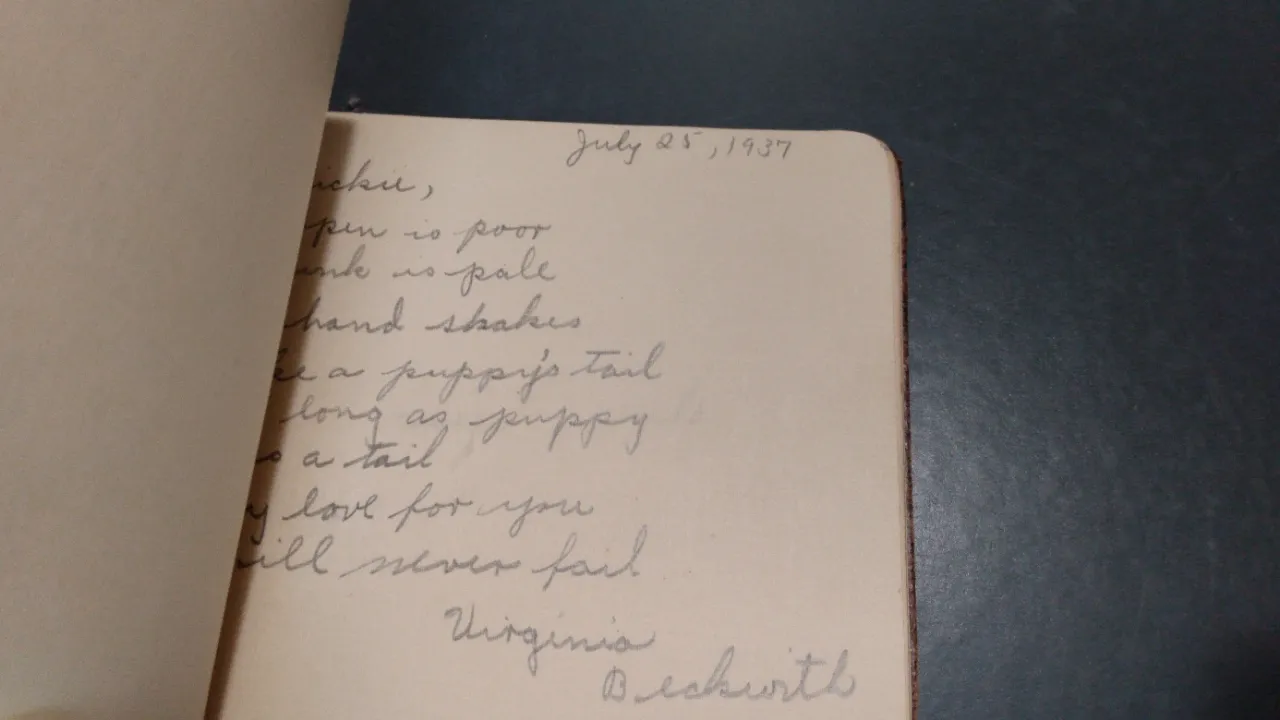 July 25, 1937
ickie,
pen is poor
ink is pale
hand shakes
ke a puppy's tail
long as puppy
s a tail
y love for you
ill never fail
Virginia
Beckwith